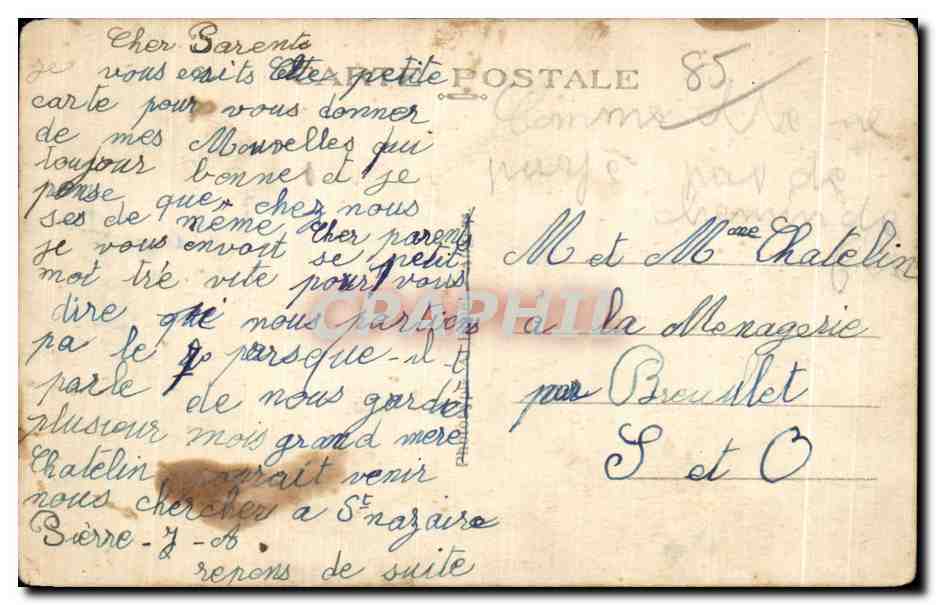 Cher Parents
je vous ecrits Cette petite
carte pour vous donner
de mes Nouvelles qui
toujour bonne et je
pense que chez nous
ses de même Cher parents
je vous envoit se petit
mot tré vite pour vous
dire que nous partions
pa le parsque il
parle de nous gardé
plusieur mois grand mère
Chatelin pourait venir
nous chercher a St nazaire
Pierre - J - A
repons de suite
CARTE POSTALE
85
Comme ne
pas de
M et Mme Chatelin
a la Menagerie
par Breuillet
S et O
CRAPHIL